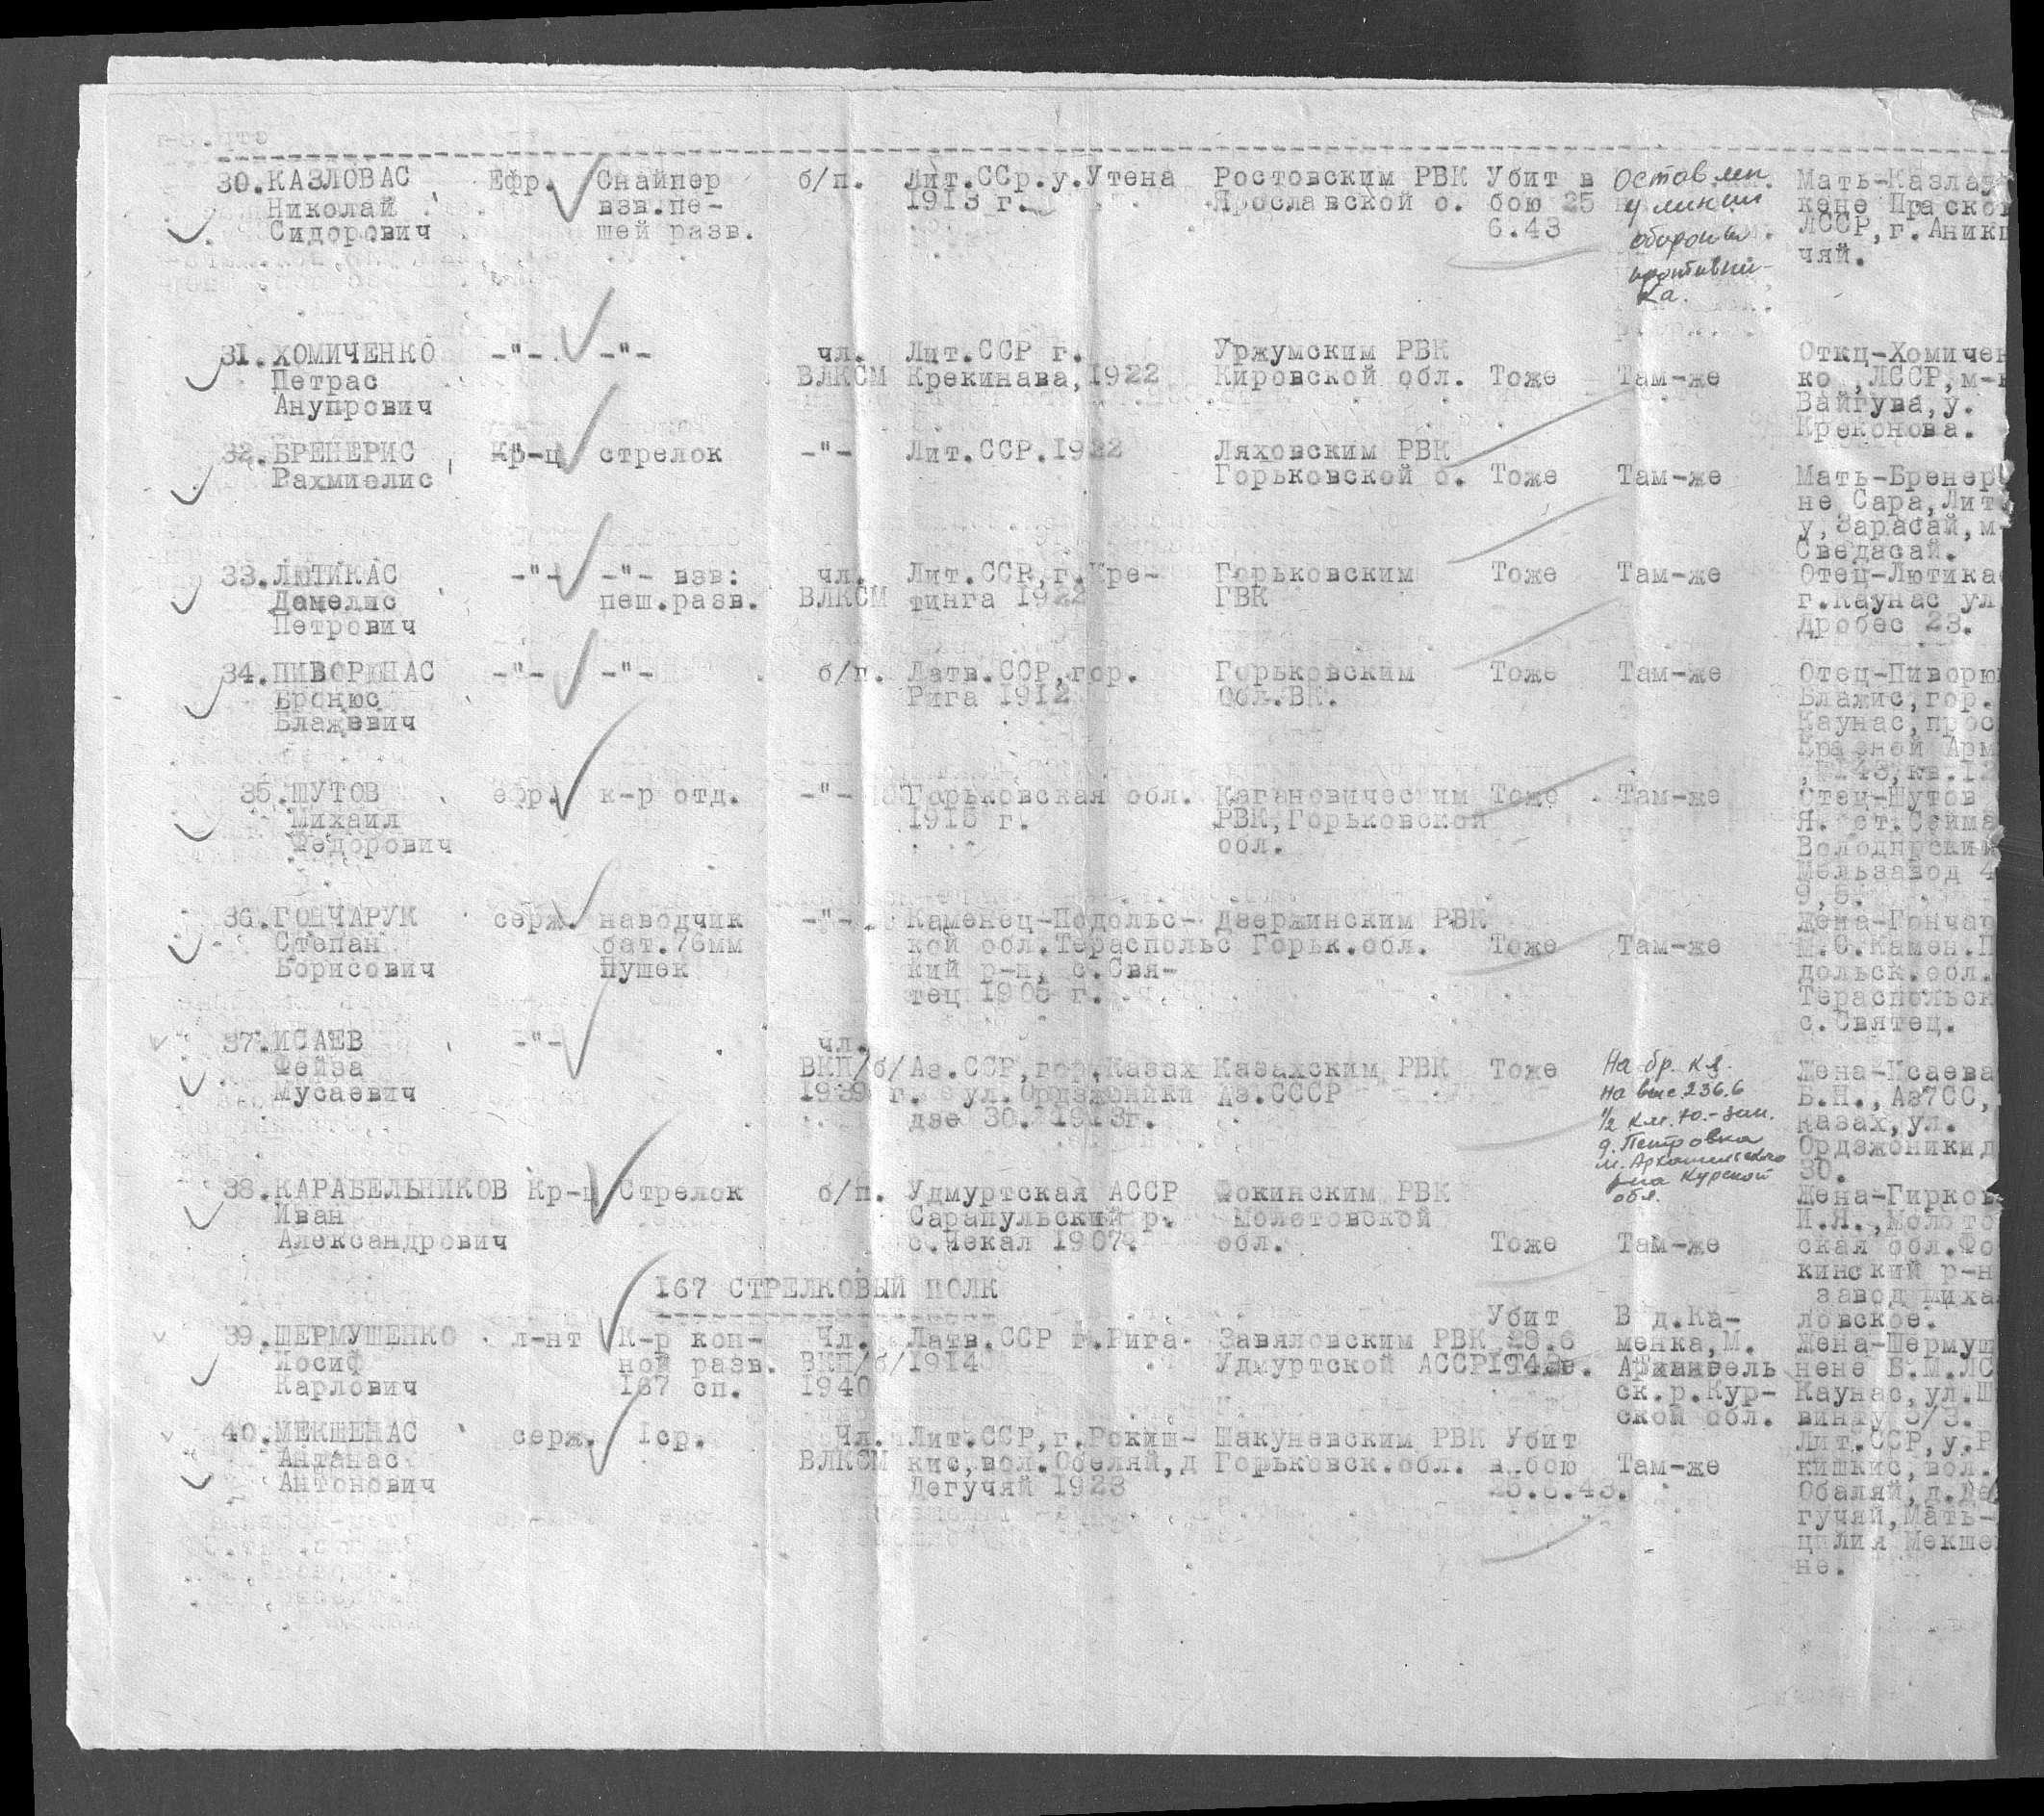 30.КАЗЛОВАС Ефр. Снайпер б/п. Лит.ССр.у.Утена Ростовским РВК Убит в Оставлен Мать-Казлау
Николай взв.пе- 1913 г. Ярославской о. бою 25 у линии кене Праско
Сидорович шей разв. 6.43 обороны ЛССР, г.Аникш
противни- чяй.
ка.
31.ХОМИЧЕНКО -"- -"- чл. Лит.ССР г. Уржумским РВК Откц-Хомичен
Петрас ВЛКСМ Крекинава,1922 Кировской обл. Тоже Там-же ко ,ЛССР,м-к
Анупрович Вайгува,у.
Креконова.
32.БРЕНЕРИС Кр-ц стрелок -"- Лит.ССР.1922 Ляховским РВК
Рахмиэлис Горьковской о. Тоже Там-же Мать-Бренер
не Сара,Лит
у,Зарасай,м-
Сведасай.
33.ЛЮТИКАС -"- -"- взв: чл. Лит.ССР,г.Кре- Горьковским Тоже Там-же Отец-Лютикас
Донелис пеш.разв. ВЛКСМ тинга 1922 ГВК г.Каунас ул
Петрович Дробес 23.
34.ПИВОРЮНАС -"- -"- б/п. Латв.ССР,гор. Горьковским Тоже Там-же Отец-Пиворю
Бронюс Рига 1912 Обл.ВК. Блажис,гор.
Блажевич Каунас,прос
Красной Арм
,№43,кв.12
35.ШУТОВ ефр. к-р отд. -"- Горьковская обл. Кагановическим Тоже Там-же Отец-Шутов
Михаил 1915 г. РВК,Горьковской Я. ст.Сейма
Федорович обл. Володарский
Мельзавод 4
9,5.
36.ГОНЧАРУК серж. наводчик -"- Каменец-Подольс- Дзержинским РВК Жена-Гончар
Степан бат.76мм кой обл.Тераспольс Горьк.обл. Тоже Там-же М.С.Камен.П
Борисович Пушек кий р-н, с.Свя- дольск.обл.
тец 1905 г. Тераспольск
с.Святец.
37.ИСАЕВ -"- чл.
Фейза ВКП/б/ Аз.ССР,гор.Казах Казахским РВК Тоже На бр. кл. Жена-Исаева
Мусаевич 1939 г. ул.Орджоники Аз.СССР на выс.236.6 Б.Н.,Аз7СС,
дзе 30. 1913г. 1/2 км. ю.-зап. Казах,ул.
д. Петровка Орджоникид
м. Архангельского 30.
р-на Курской
обл.
38.КАРАБЕЛЬНИКОВ Кр-ц Стрелок б/п. Удмуртская АССР Фокинским РВК Жена-Гирков
Иван Сарапульский р. Молотовской И.Я.,Молото
Александрович с.Чекал 1907. обл. Тоже Там-же ская обл.Фо
кинский р-н
167 СТРЕЛКОВЫЙ ПОЛК завод Миха
Убит В д.Ка- ловское.
39.ШЕРМУШЕНКО л-нт К-р кон- Чл. Латв.ССР г.Рига Завяловским РВК 23.6 менка,М. Жена-Шермуш
Иосиф ной разв. ВКП/б/ 1914 Удмуртской АССР 1943г. Архангель нене Б.М.ЛС
Карлович 167 сп. 1940 ск.р.Кур- Каунас,ул.Ш
ской обл. винту 5/3.
40.МЕКШЕНАС серж. 1ср. Чл. Лит.ССР,г.Рокиш- Шакуневским РВК Убит Лит.ССР,у.Р
Антанас ВЛКСМ кис,вол.Обеляй,д Горьковск.обл. в бою Там-же кишкис,вол.
Антонович Дегучяй 1923 25.6.43. Обаляй,д.Де
гучяй,Мать-
цилия Мекше
не.